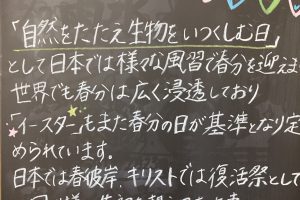 「自然をたたえ生物をいつくしむ日」
として日本では様々な風習で春分を迎えま
世界でも春分は広く浸透しており
「イースター」もまた春分の日が基準となり定
められています。
日本では春彼岸、キリストでは復活祭として